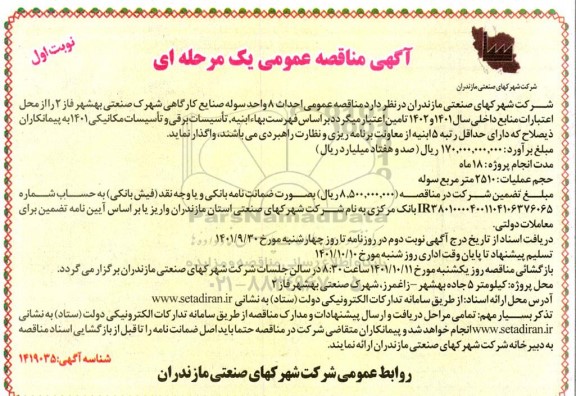 نوبت اول
آگهی مناقصه عمومی یک مرحله ای
شرکت شهرکهای صنعتی مازندران
شرکت شهرکهای صنعتی مازندران در نظر دارد مناقصه عمومی احداث ۸ واحد سوله صنایع کارگاهی شهرک صنعتی بهشهر فاز ۲ را از محل
اعتبارات منابع داخلی سال ۱۴۰۱ و ۱۴۰۲ تامین اعتبار میگردد بر اساس فهرست بهاء ابنیه، تأسیسات برقی و تأسیسات مکانیکی ۱۴۰۱ به پیمانکاران
ذیصلاح که دارای حداقل رتبه ۵ ابنیه از معاونت برنامه ریزی و نظارت راهبردی می باشند، واگذار نماید.
مبلغ برآورد: ۱۷۰,۰۰۰,۰۰۰,۰۰۰ ریال (صد و هفتاد میلیارد ریال)
مدت انجام پروژه: ۱۸ ماه
حجم عملیات: ۲۵۱۰ متر مربع سوله
مبلغ تضمین شرکت در مناقصه: (۸,۵۰۰,۰۰۰,۰۰۰ ریال) بصورت ضمانت نامه بانکی و یا وجه نقد (فیش بانکی) به حساب شماره
IR۳۸۰۱۰۰۰۰۴۰۰۱۱۰۴۱۰۶۳۷۶۰۶۵ بانک مرکزی به نام شرکت شهرکهای صنعتی استان مازندران واریز یا بر اساس آیین نامه تضمین برای
معاملات دولتی.
دریافت اسناد از تاریخ درج آگهی نوبت دوم در روزنامه تا روز چهارشنبه مورخ ۱۴۰۱/۹/۳۰
تسلیم پیشنهاد تا پایان وقت اداری روز شنبه مورخ ۱۴۰۱/۱۰/۱۰
بازگشائی مناقصه روز یکشنبه مورخ ۱۴۰۱/۱۰/۱۱ ساعت ۸:۳۰ در سالن جلسات شرکت شهرکهای صنعتی مازندران برگزار می گردد.
محل پروژه: کیلومتر ۵ جاده بهشهر - زاغمرز، شهرک صنعتی بهشهر فاز ۲
آدرس محل ارائه اسناد: از طریق سامانه تدارکات الکترونیکی دولت (ستاد) به نشانی www.setadiran.ir
تذکر بسیار مهم: تمامی مراحل دریافت و ارسال پیشنهادات و مدارک مناقصه از طریق سامانه تدارکات الکترونیکی دولت (ستاد) به نشانی
www.setadiran.ir انجام خواهد شد و پیمانکاران متقاضی شرکت در مناقصه حتما باید اصل ضمانت نامه را تا قبل از بازگشایی اسناد مناقصه
به دبیرخانه شرکت شهرکهای صنعتی مازندران ارائه نمایند.
شناسه آگهی: ۱۴۱۹۰۳۵
روابط عمومی شرکت شهرکهای صنعتی مازندران